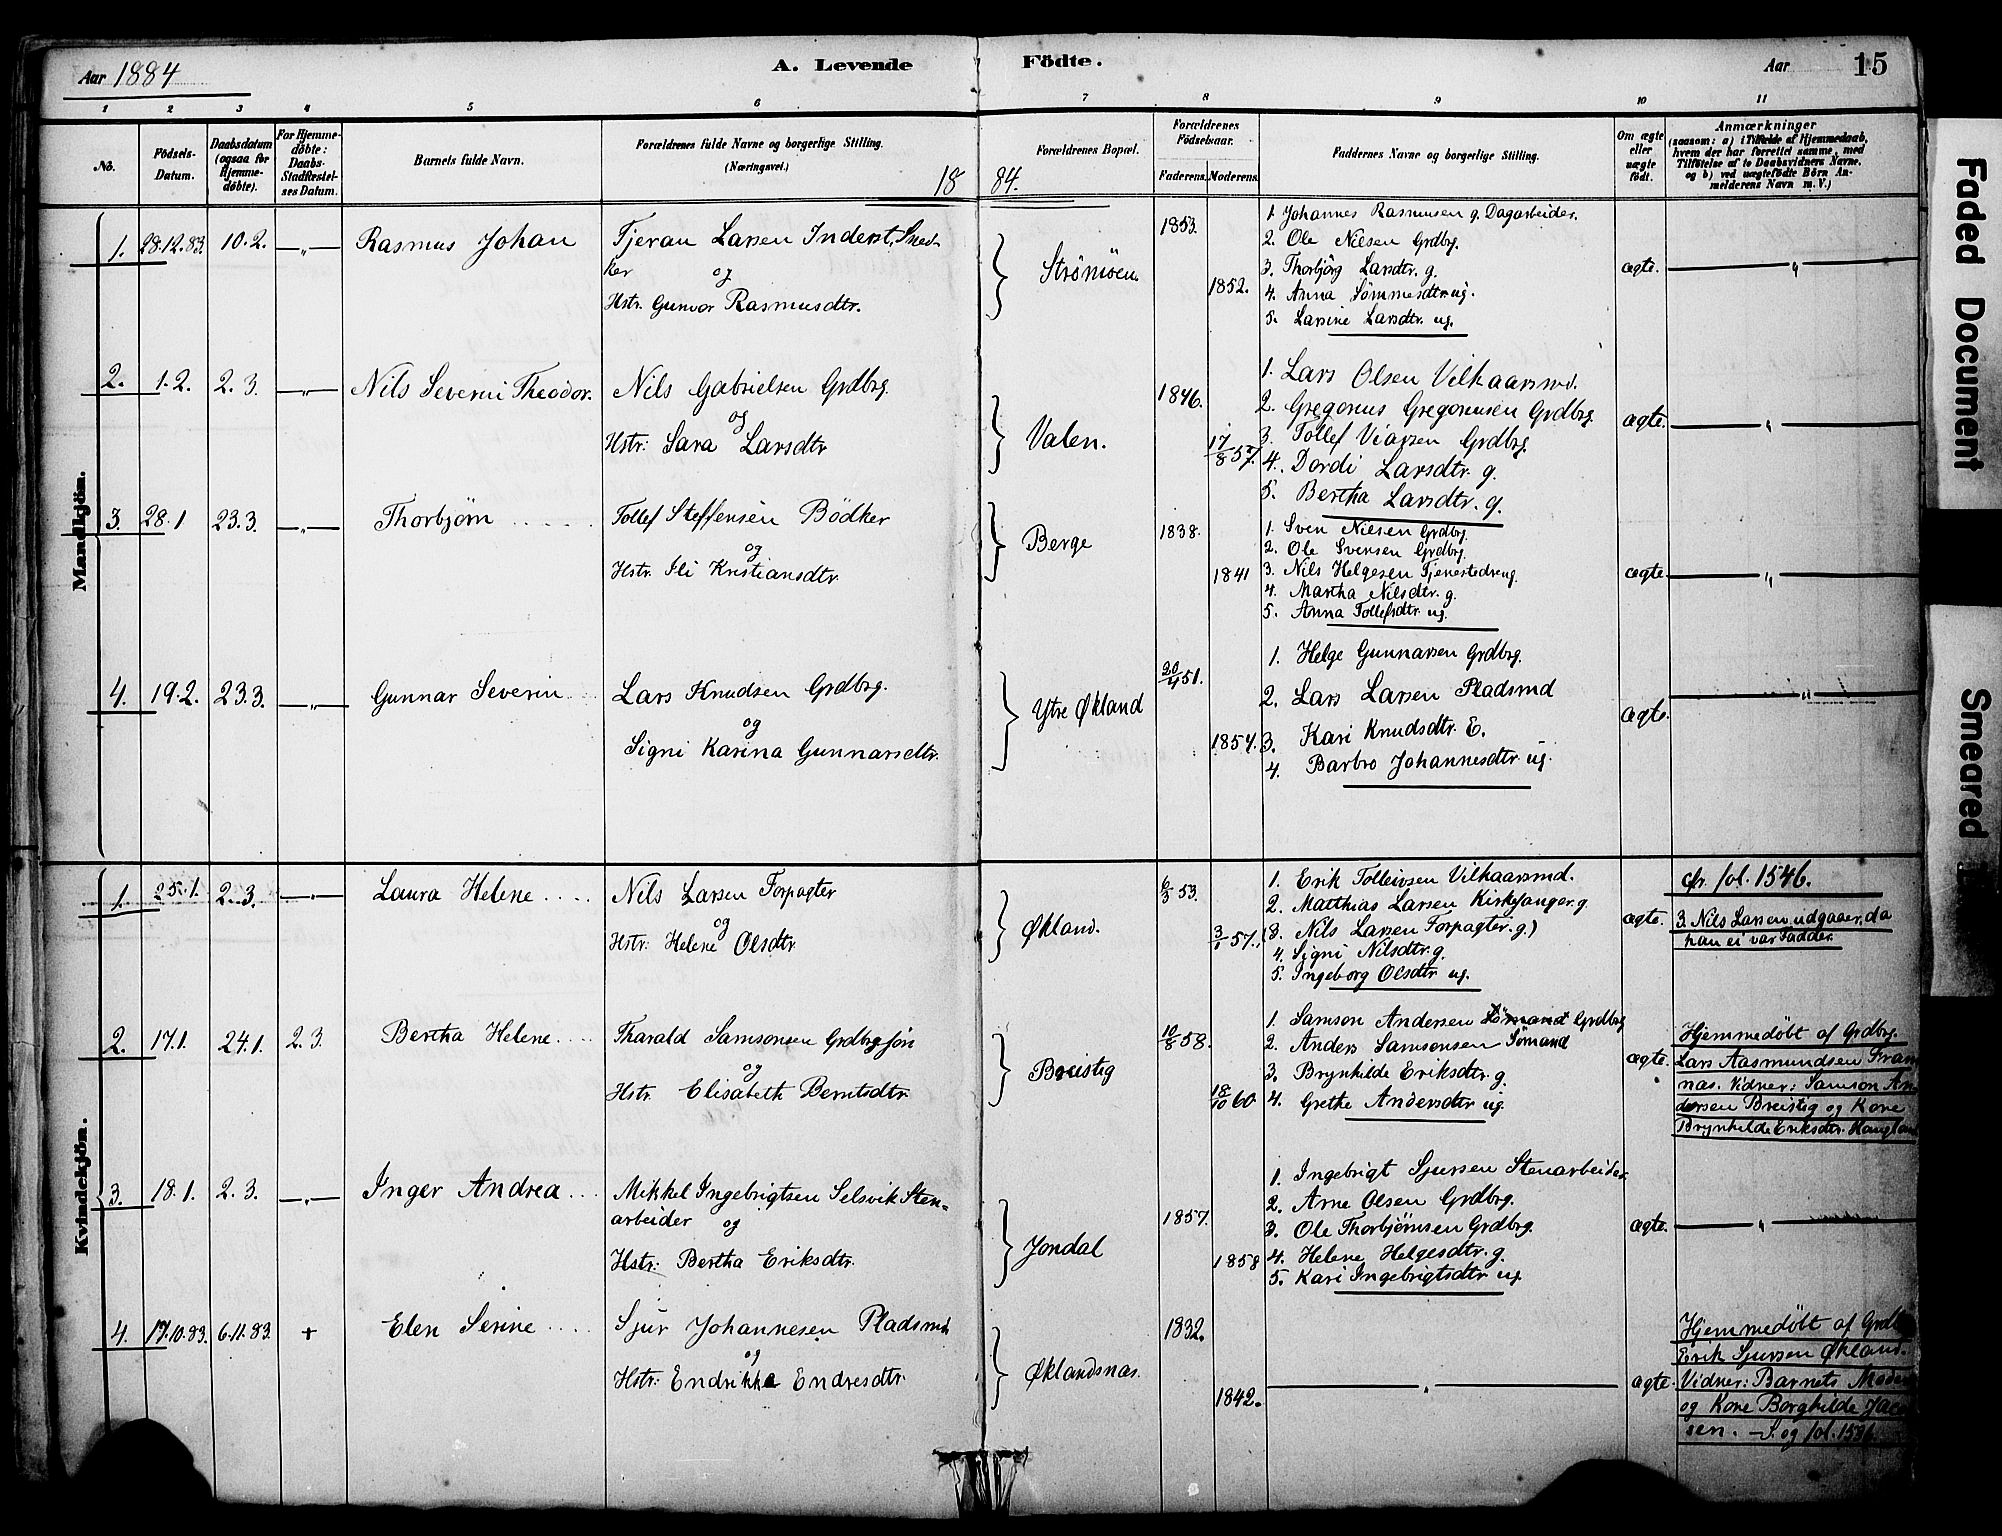 Aar 1884
A. Levende Födte.
Aar 15
1 2 3 4 5 6 7 8 9 10 11
No.
Födsels-Datum.
Daabsdatum (ogsaa for Hjemmedöbte).
For Hjemmedöbte: Daabs-Stadfæstelses Datum.
Barnets fulde Navn.
Forældrenes fulde Navne og borgerlige Stilling.
(Næringsvei.)
1884.
Forældrenes Bopæl.
Forældrenes Födselsaar.
Faderens. Moderens.
Faddernes Navne og borgerlige Stilling.
Om ægte eller uægte födt.
Anmærkninger
(saasom: a) i Tilfælde af Hjemmedaab,
hvem der har forrettet samme, med
Tilföielse af to Daabsvidners Navne,
og b) ved uægtefödte Börn An-
melderens Navn m. V.)
Mandkjön.
1. 28.12.83. 10.2. —„— Rasmus Johan
Tjeran Larsen Inderst, Sned-
ker og
Hstr. Gunvor Rasmusdtr.
Strömöen.
1853.
1852.
1. Johannes Rasmusen g. Dagarbeider.
2. Ole Nilsen Grdbrg.
3. Thorbjörg Larsdtr. g.
4. Anna Sömmesdtr. ug.
5. Larsine Larsdtr. ug.
ægte. —„—
2. 1.2. 2.3. —„— Nils Severin Theodor.
Nils Gabrielsen Grdbrg.
og
Hstr: Sara Larsdtr
Valen.
1846.
17/8 57.
1. Lars Olsen Vilkaarsmd.
2. Gregorius Gregoriusen Grdbrg.
3. Tollef Viarsen Grdbrg.
4. Dordi Larsdtr. g.
5. Bertha Larsdtr. g.
ægte. —„—
3. 28.1 23.3. —„— Thorbjørn
Tollef Steffensen Bödker
og
Hstr. Sli Kristiansdtr.
Berge
1838.
1841
1. Sven Nilsen Grdbrg.
2. Ole Svensen Grdbrg.
3. Nils Helgesen Tjenestedreng.
4. Martha Nilsdtr. g.
5. Anna Tollefsdtr. ug.
ægte. —„—
4. 19.2. 23.3. —„— Gunnar Severin
Lars Knudsen Grdbrg.
og
Signi Karina Gunnarsdtr.
Ytre Økland
20/4 51.
1854.
1. Helge Gunnarsen Grdbrg.
2. Lars Larsen Pladsmd
3. Kari Knudsdtr. E.
4. Barbro Johannesdtr. ug.
ægte. —„—
Kvindekjön.
1. 25.1. 2.3. —„— Laura Helene
Nils Larsen Forpagter
og
Hstr: Helene Olsdtr.
Økland.
6/3 53.
3/1 57.
1. Erik Tolleivsen Vilkaarsmd.
2. Matthias Larsen Kirkesanger. g.
(3. Nils Larsen Forpagter. g.)
4. Signi Nilsdtr. g.
5. Ingeborg Olsdtr ug.
ægte.
cfr. fol. 1546.
3. Nils Larsen udgaaer, da
han ei var Fadder.
2. 17.1. 24.1. 2.3. Bertha Helene
Tharald Samsonsen Grdbrgsön
og
Hstr. Elisabeth Berntsdtr.
Breistig
10/8 58.
18/10 60
1. Samson Andersen Sömand Grdbrg
2. Anders Samsonsen Sömand
3. Brynhilde Eriksdtr. g.
4. Grethe Andersdtr ug.
ægte.
Hjemmedøbt af Grdbrg.
Lars Aasmundsen Fram
nas. Vidner: Samson An
dersen Breistig og Kone
Brynhilde Eriksdtr. Hauglan
3. 18.1. 2.3. —„— Inger Andrea
Mikkel Ingebrigtsen Selsvik Sten-
arbeider og
Hstr: Bertha Eriksdtr.
Jondal
1857.
1858
1. Ingebrigt Sjursen Stenarbeider.
2. Arne Olsen Grdbrg.
3. Ole Thorbjørnsen Grdbrg.
4. Helene Helgesdtr. g.
5. Kari Ingebrigtsdtr ug.
ægte. —„—
4. 17.10.83. 6.11.83. + Elen Serine
Sjur Johannesen Pladsmd.
og
Hstr: Endrikke Endresdtr.
Øklandsnas.
1832.
1842.
—„—
ægte.
Hjemmedöbt af Grdbr
Erik Sjursen Økland.
Vidner: Barnets Moder
og Kone Borghilde Jac
sen.
Faded Document
Smeared